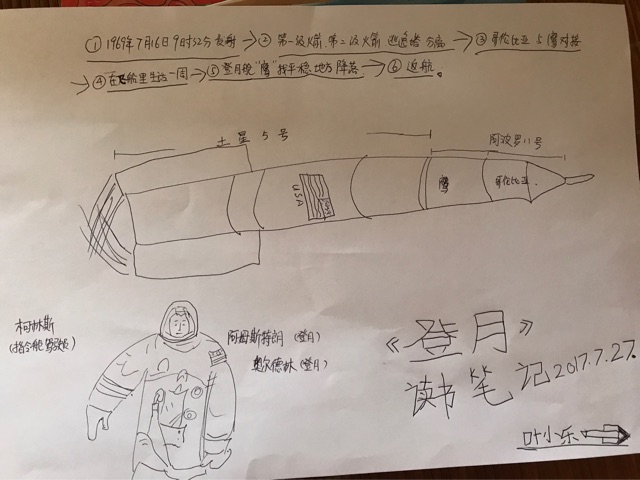 ① 1969年7月16日9时32分发射→② 第一级火箭、第二级火箭、逃逸塔分离→③ 哥伦比亚与鹰对接
→④ 在飞船里生活一周→⑤ 登月舱"鹰"找平稳地方降落→⑥ 返航。
土星5号
阿波罗11号
USA
鹰
哥伦比亚
柯林斯
(指令舱驾驶)
阿姆斯特朗(登月)
奥尔德林(登月)
《登月》
读书笔记2017.7.27.
叶小乐